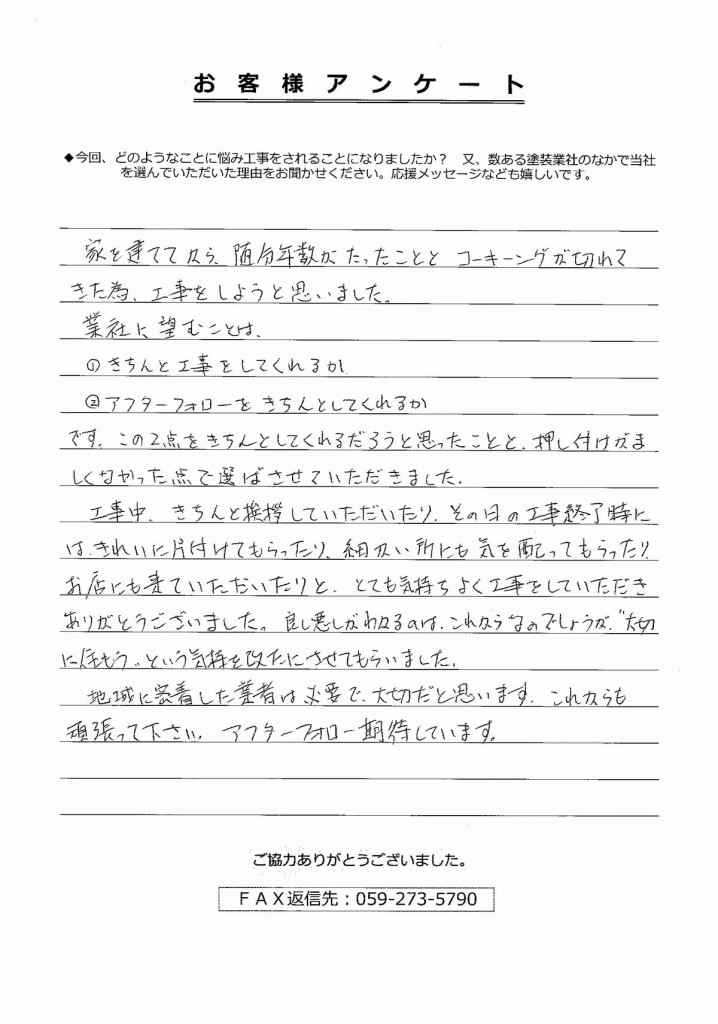 お客様アンケート
◆今回、どのようなことに悩み工事をされることになりましたか？　又、数ある塗装業社のなかで当社
を選んでいただいた理由をお聞かせください。応援メッセージなども嬉しいです。
家を建ててから、随分年数がたったことと コーキーングが切れて
きた為、工事をしようと思いました。
業社に望むことは、
①きちんと工事をしてくれるか
②アフターフォローをきちんとしてくれるか
です。この2点をきちんとしてくれるだろうと思ったことと、押し付けがま
しくなかった点で選ばさせていただきました。
工事中、きちんと挨拶していただいたり、その日の工事終了時に
は、きれいに片付けてもらったり、細かい所にも気を配ってもらったり、
お店にも来ていただいたりと、とても気持ちよく工事をしていただき
ありがとうございました。良し悪しがわかるのは、これからなのでしょうが、"大切
に住もう"という気持を改たにさせてもらいました。
地域に密着した業者は必要で、大切だと思います。これからも
頑張って下さい。アフターフォロー期待しています。
ご協力ありがとうございました。
ＦＡＸ返信先：059-273-5790